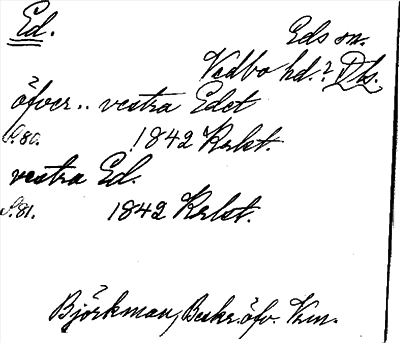 Ed.
Eds sn.
Vedbo hd.? Dls.
öfver .. vestra Edet
S. 80. 1842 Krlst.
vestra Ed.
S. 81. 1842 Krlst.
Björkman, Beskr. öfv. Vrm.